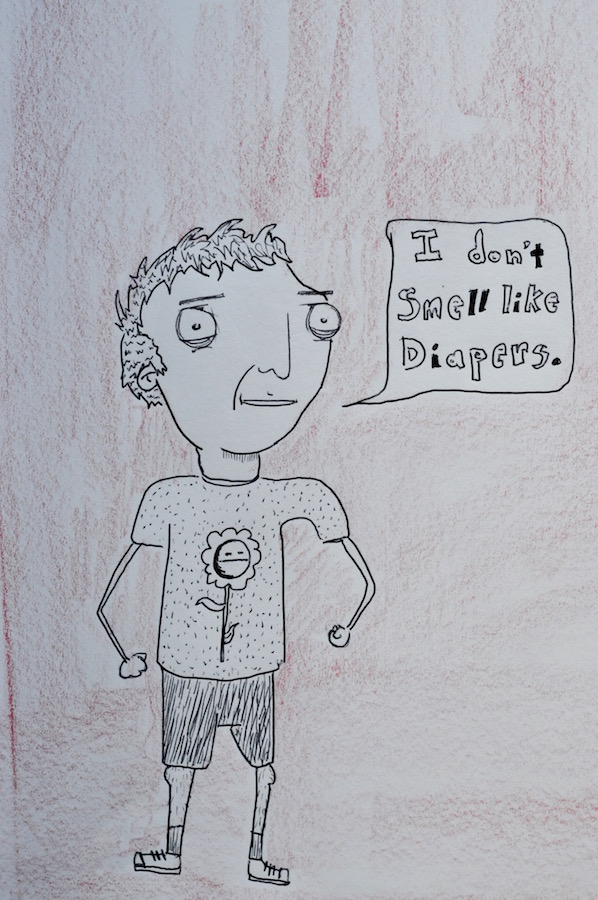 I don't
Smell like
Diapers.